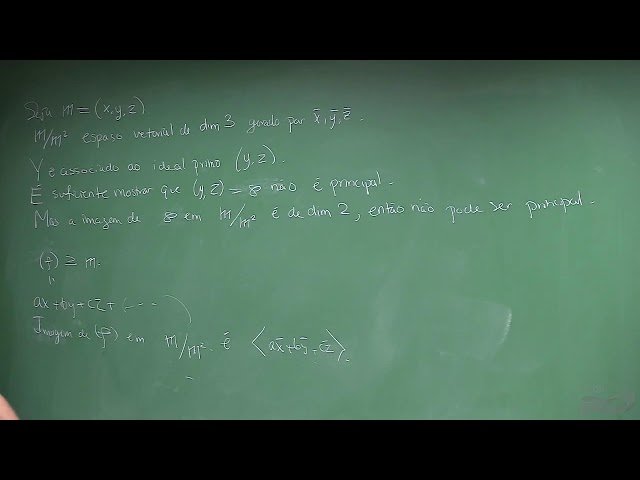 Seja m = (x, y, z)
m/m² espaso vetorial de dim 3 gerado par x̄, ȳ, z̄.
Y é associado ao ideal primo (y, z).
É sufiente mostrar que (y, z) = ℘ não é principal.
Mas a imagem de ℘ em m/m² é de dim 2, então não pode ser principal.
(f) ⊇ m.
ax + by + cz + ...
Imagem de (f) em m/m². é ⟨ax̄ + bȳ + cz̄⟩.